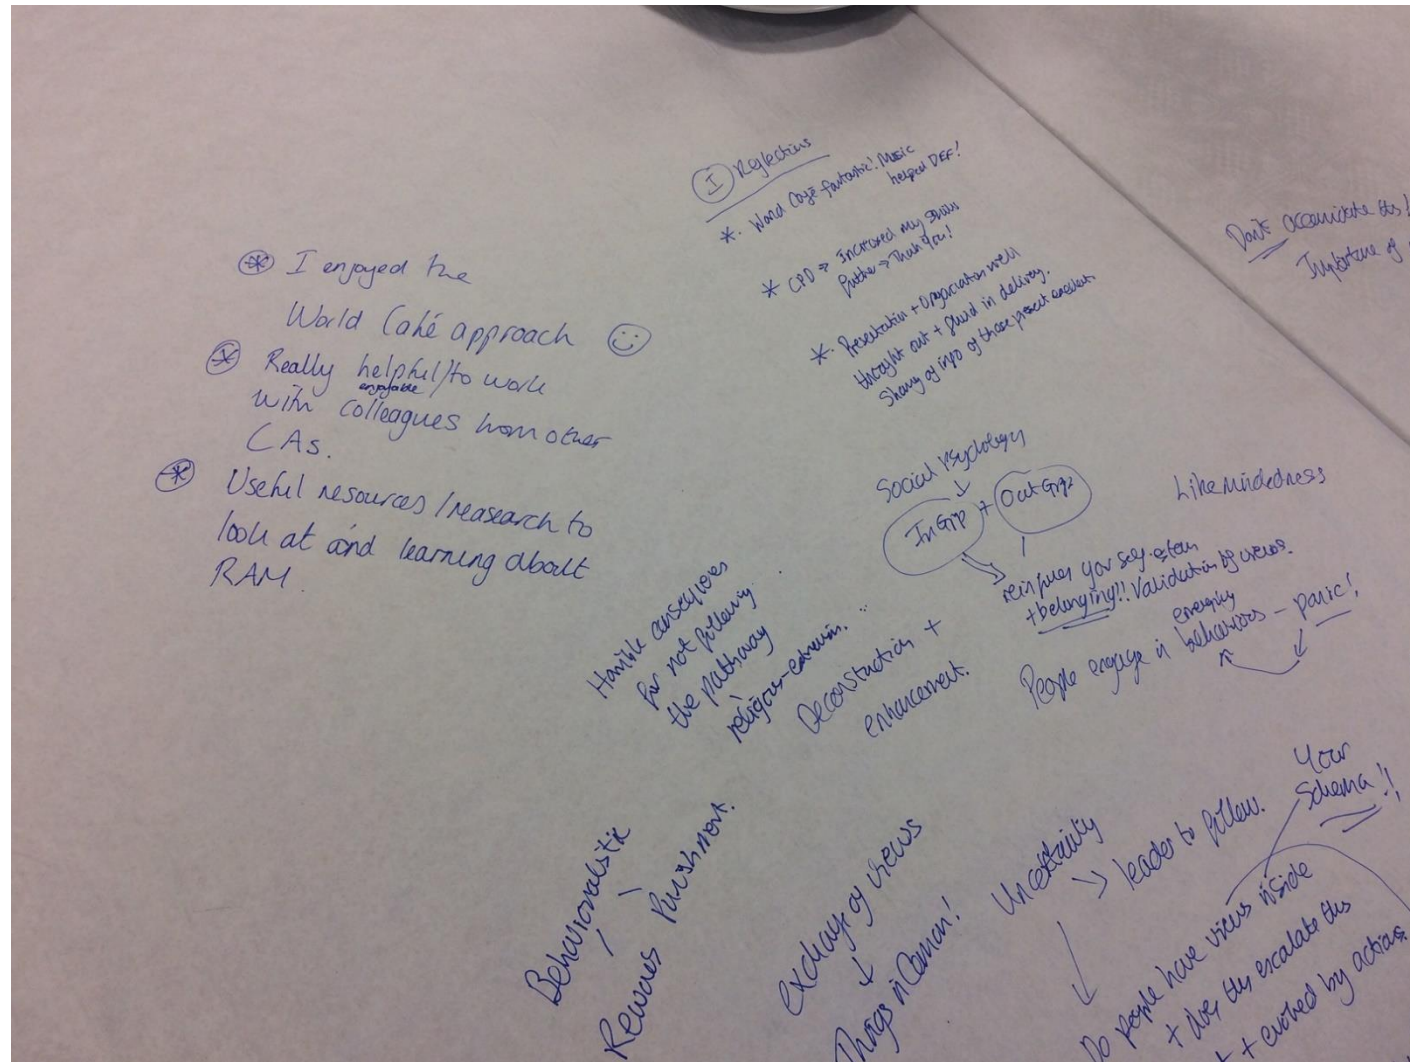 * I enjoyed the
World Café approach
* Really helpful/to work
enjoyable
with colleagues from other
CAs.
* Useful resources/reasearch to
look at and learning about
RAM.
I Reflections
*. World Café fantastic! Music
helped DEF!
* CPD → Increased my skills
further → Thank You!
*. Presentation + Organisation well
thought out + fluid in delivery.
Sharing of info of those present excellent.
Social Psychology
↓
InGrp + OutGrp
reinforces your self-esteem
+ belonging!! Validation of views.
Like mindedness
emerging
People engage in behaviours - panic!
Horrible consequences
for not following
the pathway
religious-extremism.
Deconstruction +
enhancement.
Behaviouralistic
Rewards Punishment.
exchange of views
↓
Things in Common!
Uncertainity
→ leader to follow.
Your
Schema!!
Do people have views inside
+ does this escalate this
+ evolved by actions.
Don't accomidate this!
Importance of